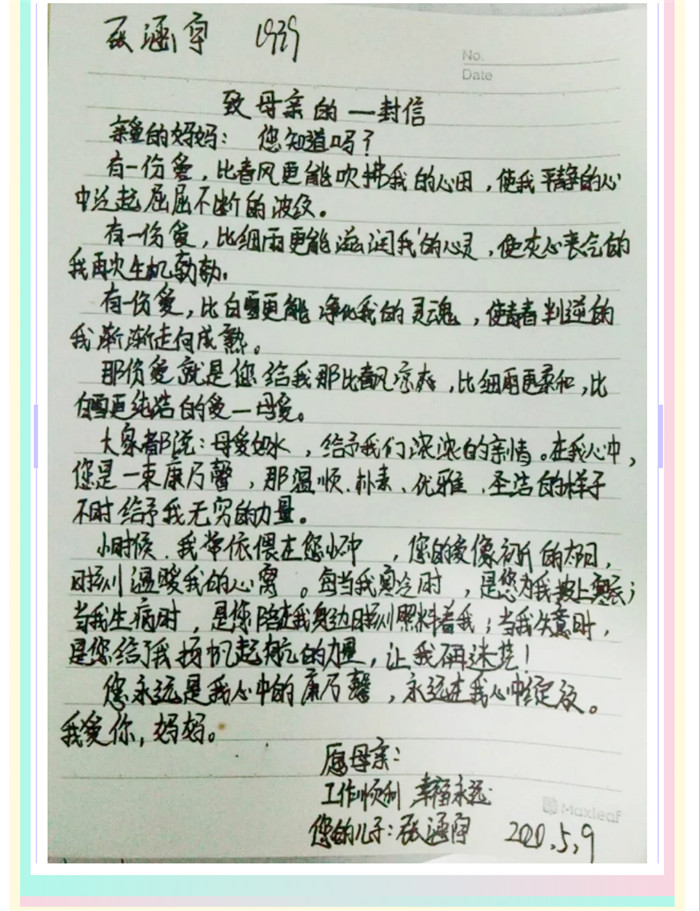 张涵宇 1939
No.
Date
致母亲的一封信
亲爱的妈妈： 您知道吗？
有一份爱，比春风更能吹拂我的心田，使我平静的心
中泛起屈屈不断的波纹。
有一份爱，比细雨更能滋润我的心灵，使灰心丧气的
我再次生机勃勃。
有一份爱，比白雪更能净化我的灵魂，使青春判逆的
我渐渐走向成熟。
那份爱就是您给我那比春风凉爽，比细雨更柔和，比
白雪更纯洁的爱一母爱。
大家都说：母爱如水，给予我们浓浓的亲情。在我心中，
您是一束康乃馨，那温顺、朴素、优雅、圣洁的样子
不时给予我无穷的力量。
小时候，我常依偎在您怀中，您的爱像初升的太阳，
时刻温暖我的心窝。每当我寒冷时，是您为我披上寒衣；
当我生病时，是您陪在我身边时刻照料着我；当我失意时，
是您给了我扬帆起航的力量，让我不再迷茫！
您永远是我心中的康乃馨，永远在我心中绽放。
我爱你，妈妈。
愿母亲：
工作顺利 幸福永远
您的儿子：张涵宇 2020.5.9
Maxleaf